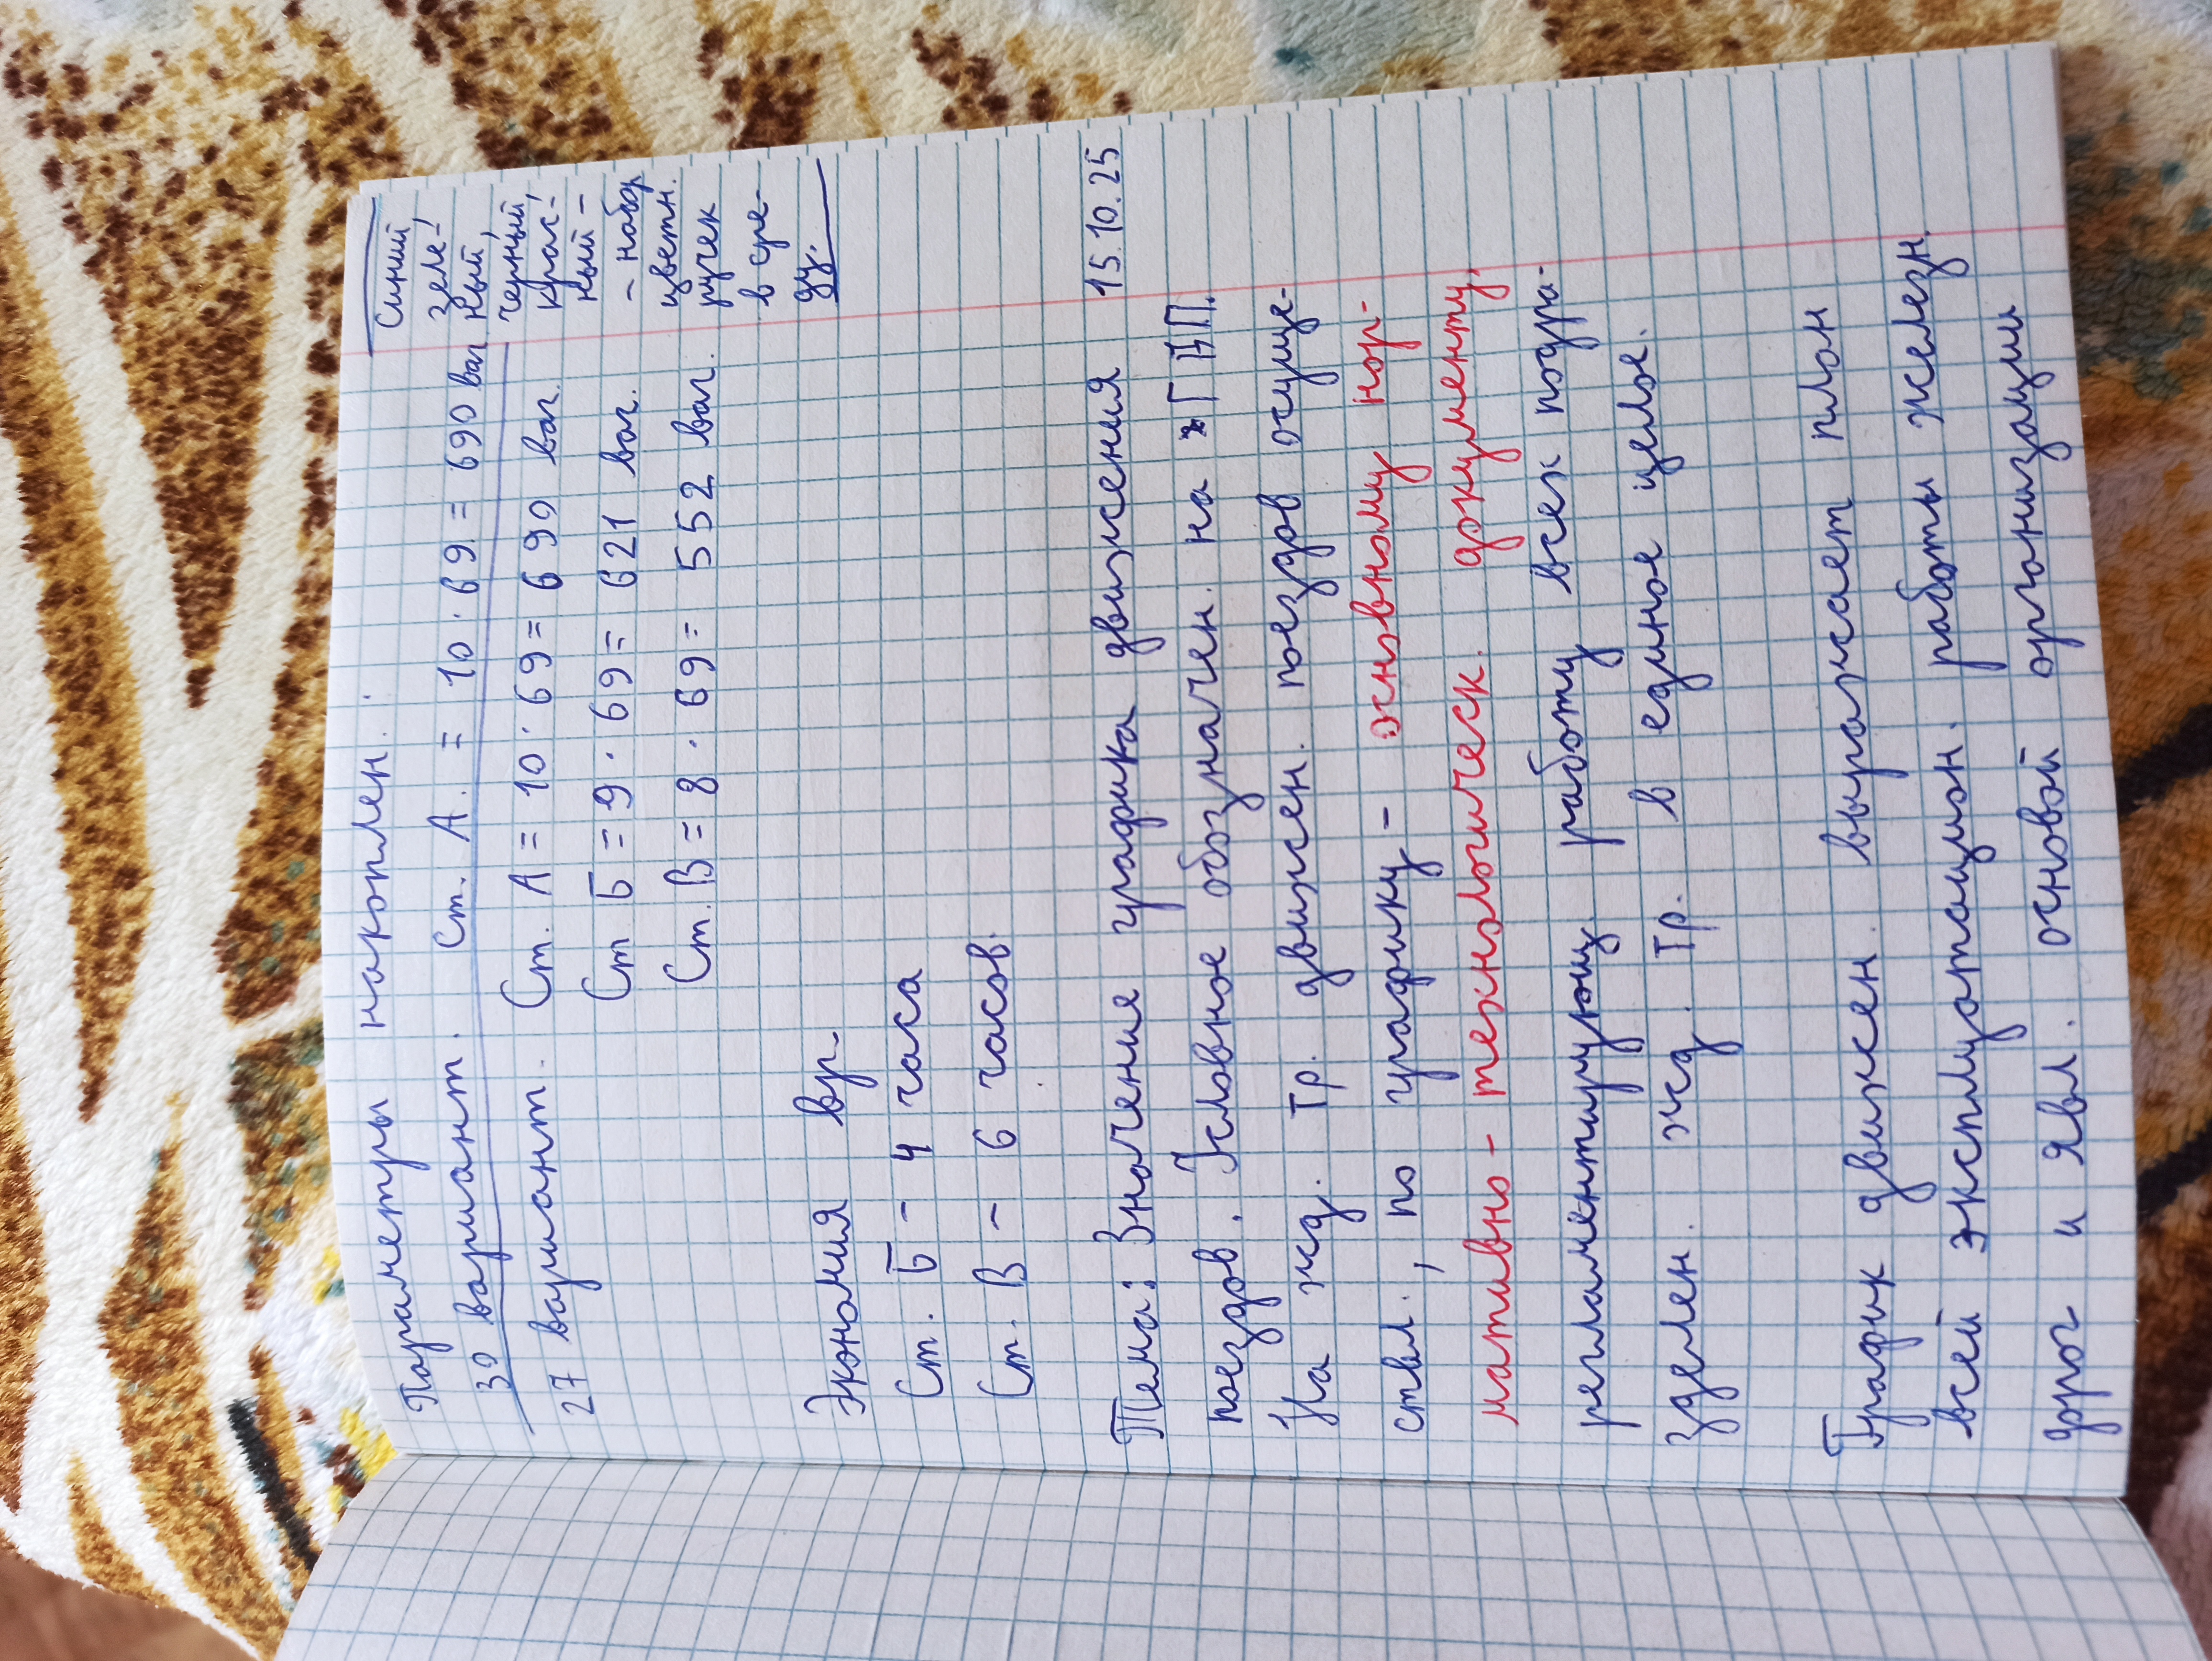 Параметры накоплен. :
30 вариант. Ст. А. = 10 · 69 = 690 ваг
27 вариант. Ст. А = 10 · 69 = 690 ваг.
Ст. Б = 9 · 69 = 621 ваг.
Ст. В = 8 · 69 = 552 ваг.
Синий,
зеле-
ный,
черный,
крас-
ный -
- набор
цветн.
ручек
в сре-
ду.
Экономия вр.
Ст. Б - 4 часа
Ст. В - 6 часов.
15.10.25
Тема: Значение графика движения
поездов. Условное обозначен. на ГВП.
На жд. Гр. движен. поездов осуще-
ствл., по графику - основному нор-
мативно - технологическ. документу,
регламентирующ. работу всех подра-
зделен. жд. Гр. в единое целое.
График движен. выражает план
всей эксплуатацион. работы железн.
дрог и явл. основой организации